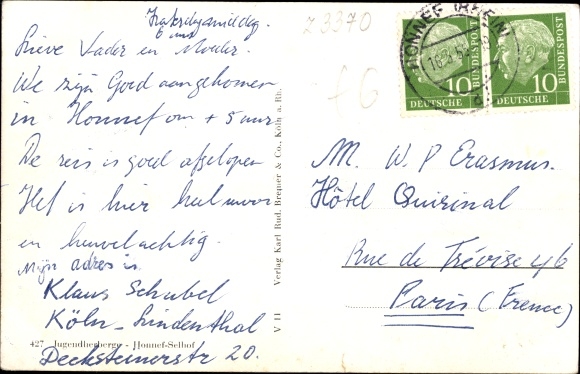 Zaterdagmiddag.
6 uur
Lieve Vader en Moeder.
We zijn Goed aangekomen
in Honnef om ± 5 uur
De reis is goed afgelopen
Het is hier heel mooi
en heuvelachtig.
Mijn adres is
Klaus Schubel
Köln-Lindenthal
Decksteinerstr 20.
427 Jugendherberge - Honnef-Selhof
V 11 Verlag Karl Rud. Bremer & Co., Köln a. Rh.
z 3370
f6
HONNEF (RHEIN)
10 DEUTSCHE BUNDESPOST
10 DEUTSCHE BUNDESPOST
M. W. P Erasmus.
Hôtel Quirinal
Rue de Trévise 4/6
Paris (France)